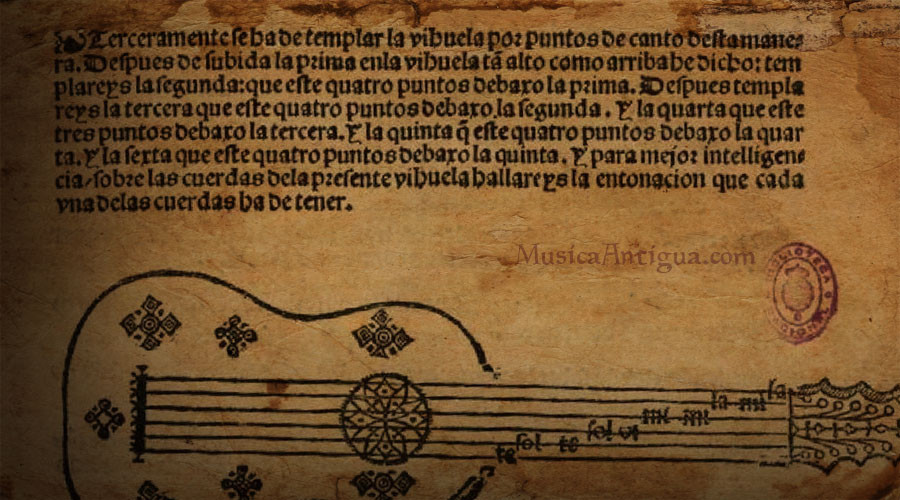 Terceramente se ha de templar la vihuela por puntos de canto desta mane-
ra. Despues de subida la prima enla vihuela tã alto como arriba he dicho: tem
plareys la segunda: que este quatro puntos debaxo la prima. Despues templa
reys la tercera que este quatro puntos debaxo la segunda. Y la quarta que este
tres puntos debaxo la tercera. Y la quinta q̃ este quatro puntos debaxo la quar
ta. Y la sexta que este quatro puntos debaxo la quinta. Y para mejor intelligen-
cia/ sobre las cuerdas dela presente vihuela hallareys la entonacion que cada
vna delas cuerdas ha de tener.
MusicaAntigua.com
la
la mi
mi mi
sol vt
sol re
re